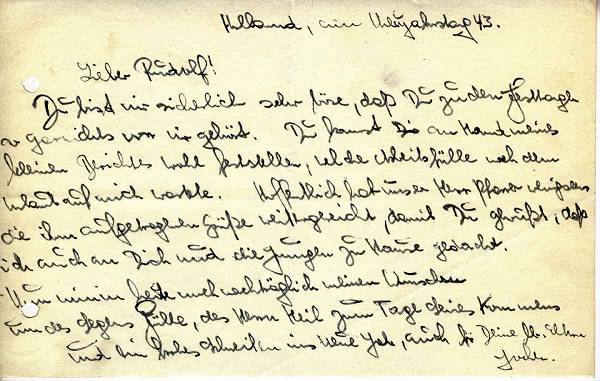 Holland, am Neujahrstag 43.
Lieber Rudolf!
Du bist mir sicherlich sehr böse, daß Du zu den Festtagen
gar nichts von mir gehört. Du kannst Dir an Hand meines
kleinen Berichtes wohl feststellen, welche Arbeitsfülle nach dem
Urlaub auf mich wartete. Hoffentlich hat unser Herr Pfarrer wenigstens
die ihm aufgetragenen Grüße weitergereicht, damit Du gewußt, daß
ich auch an Dich und die Jungen zu Hause gedacht.
Nun nimm heute noch nachträglich meinen Wunsch
um des Segens Fülle, des Herrn Heil zum Tage seines Kommens
und ein frohes Schreiten ins neue Jahr, auch für Deine lb. Eltern